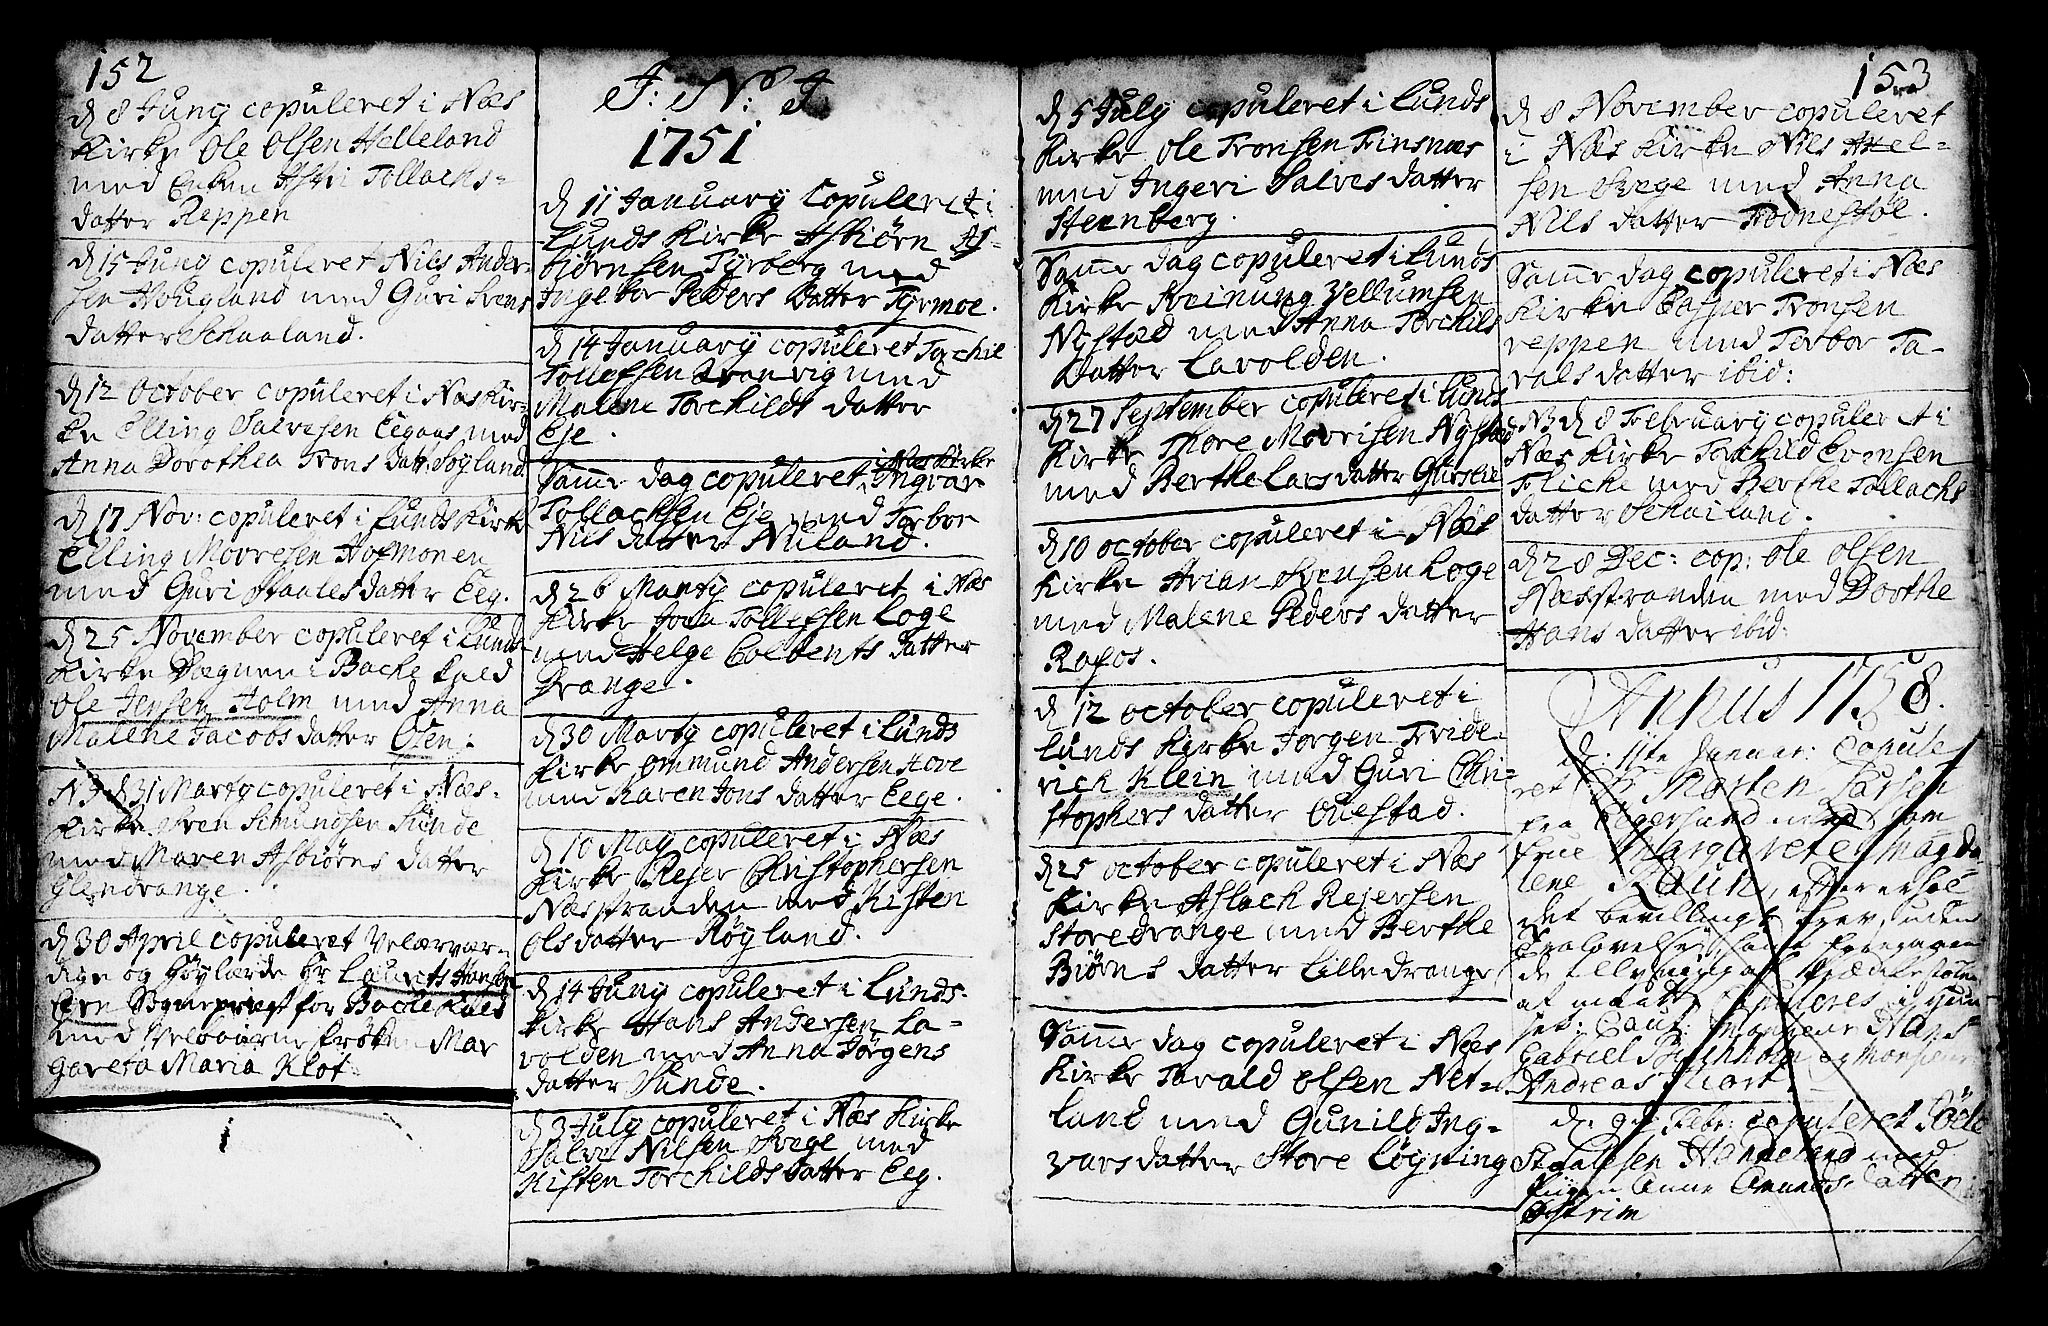 152
d 8 Juny copuleret i Næs
Kirke Ole Olsen Helleland
med Enken Tollachs-
datter Reppen
d 15 Juny copuleret Nils Ander-
sen Hougland med Guri Svens
datter Schaaland.
d 12 October copuleret i Næs Kir-
ke Elling Salvesen Eegaas med
Anna Dorothea Trons datt: Søyland
d 17 Nov: copuleret i Lunds Kirke
Elling Movresen Hofmonen
med Guri Staalesdatter Eeg.
d 25 November copuleret i Lunds
Kirke Degnen i Backe Kald
Ole Jensen Holm med Anna
Malene Jacobs datter Osen:
NB d 31 Marty copuleret i Næs-
Kirke Sven Simundsen Sünde
med Maren Asbiørns datter
Glendrange.
d 30 April copuleret Velærvær-
dige og Høylærde Hr Laurits Hansen
præst for Backe Kald
med Velbaarne Frøken Mar
gareta Maria Klot
J: N: J
1751
d 11 January Copuleret i
Lunds Kirke Asbiørn As-
biørnsen Tyrberg med
Ingebor Peders Datter Tyrmoe.
d 14 January copuleret Torchil
Tollefsen Tronvig med
Malene Torchilds datter
Eje.
Samme dag copuleret i Næs Kirke Ingvar
Tollachsen Eje med Torbor
Nils datter Niiland.
d 26 Marty copuleret i Næs
Kirke Jon Tollefsen Loge
med Helge Colbents datter
Drange.
d 30 Marty copuleret i Lunds
Kirke Ommund Andersen Hove
med Karen Jons datter Eege.
d 10 May copuleret i Næs
Kirke Rejer Christophersen
Næsstranden med Kisten
Olsdatter Røyland.
d 14 Juny copuleret i Lunds-
Kirke Hans Andersen La-
volden med Anna Jørgens
datter Sünde.
d 3 July copuleret i Næs Kirke
Salve Nilsen Svege med
Kisten Torchilds datter Eeg.
d 5 July copuleret i Lunds
Kirke Ole Tronsen Finsnæs
med Ingeri Salves datter
Steenberg.
Samme dag copuleret i Lunds
Kirke Steinung Zellumsen
Nystad med Anna Torchils
Datter Lavolden.
d 27 September copuleret i Lunds
Kirke Thore Movrisen Nystad
med Berthe Larsdatter
d 10 October copuleret i Næs
Kirke Arian Svensen Loge
med Malene Peders datter
Rafos.
d 12 October copuleret i
Lunds Kirke Jorgen Fride-
rich Klein med Guri Chri-
stophers datter Questad.
d 25 October copuleret i Næs
Kirke Aslach Rejersen
Storedrange med Berthe
Biørns datter Lilledrange
Samme dag copuleret i Næs
Kirke Tarald Olsen Net-
land med Gunild Ing-
vars datter Store Løyning
153
d 8 November copuleret
i Næs Kirke Nils Axel-
sen Svege med Anna
Nils datter Trodnestøl.
Samme dag copuleret i Næs
Kirke Casper Tronsen
reppen med Torbor Ta-
rals datter ibid:
NB d 8 February copuleret i
Næs Kirke Torchild Evensen
Flicke med Berthe Tollachs
datter Schailand.
d 28 Dec: cop: Ole Olsen
Næsstranden med Dorthe
Hans datter ibid:
Annus 1758.
d. 11te Januar: Copule
ret Sr Morten Larsen
fra Egersund med Jom
frue Margarete Magda
lene Raun, efter erhol
det bevillings brev, uden
Trolovelse
af
at maatte Copuleres i Huu-
set: Caut: Monsieur Hans
Gabriel Buchholm og Monsieur
Andreas
d: 9de Febr: copuleret
Staalesen Hanneland med
Pigen Anne datter
Østrim